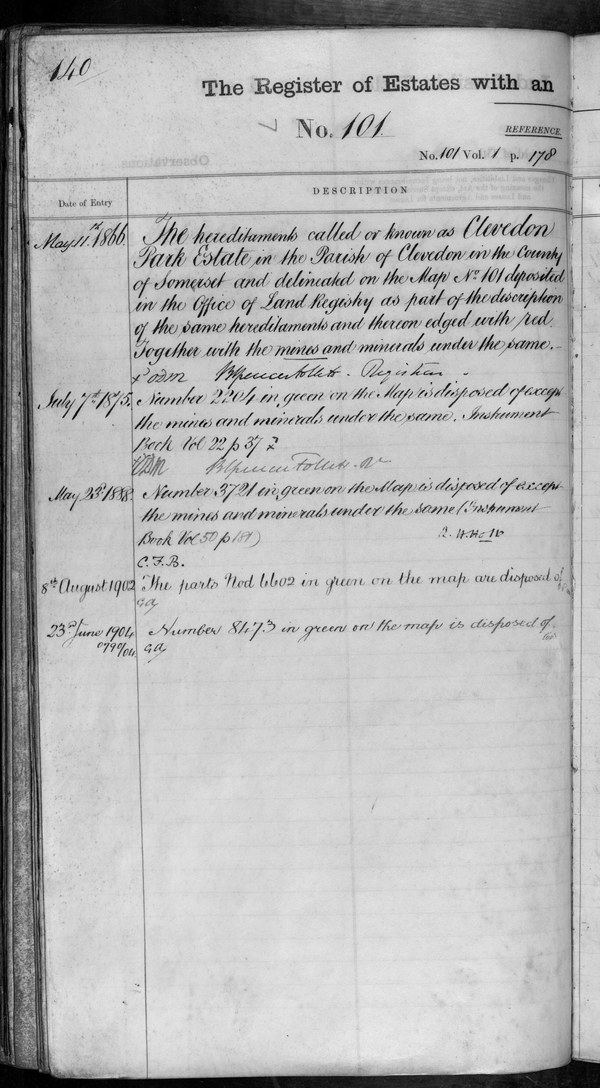 140
The Register of Estates with an
No. 101.
REFERENCE.
No. 101 Vol. 1 p. 178
Date of Entry
DESCRIPTION
May 11th 1866. The hereditaments called or known as Clevedon
Park Estate in the Parish of Clevedon in the County
of Somerset and delineated on the Map No 101 deposited
in the Office of Land Registry as part of the description
of the same hereditaments and thereon edged with red.
Together with the mines and minerals under the same.
BSpencer Follett - Registrar -
July 7th 1875. Number 2204 in green on the Map is disposed of except
the mines and minerals under the same. Instrument
Book Vol 22 p 37
BSpencer Follett
May 23d 1888 Number 3721 in green on the Map is disposed of except
the mines and minerals under the same (Instrument
Book Vol 50 p 189)
C.F.B.
8th August 1902 The parts Nod 6602 in green on the map are disposed of
GA
23rd June 1904 Number 8473 in green on the map is disposed of.
GA